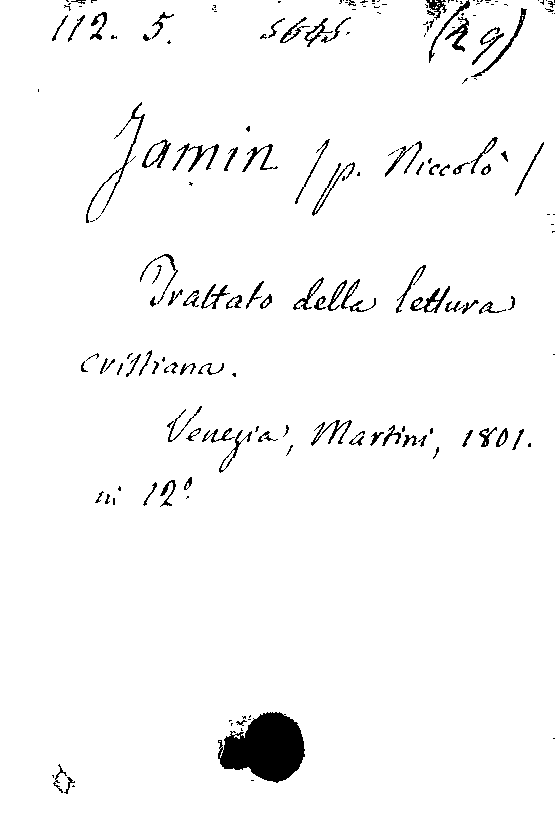 112. 5. 5645. (29)
Jamin / p. Niccolò /
Trattato della lettura
cristiana.
Venezia, Martini, 1801.
in 12º